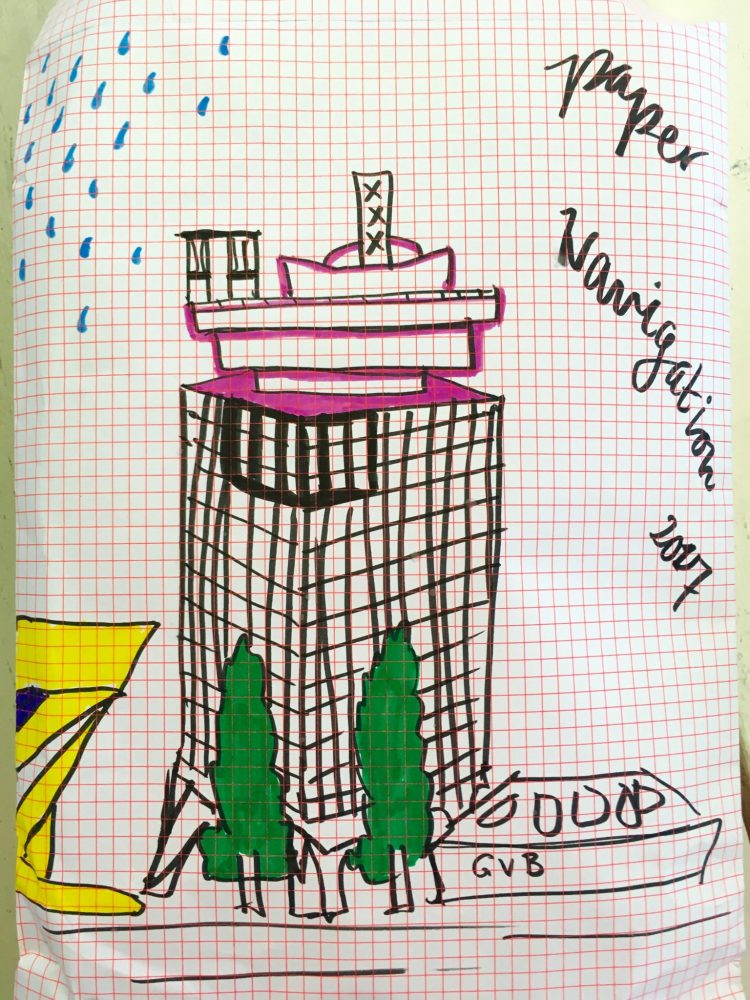 paper
Navigation
2017
X
X
X
GVB